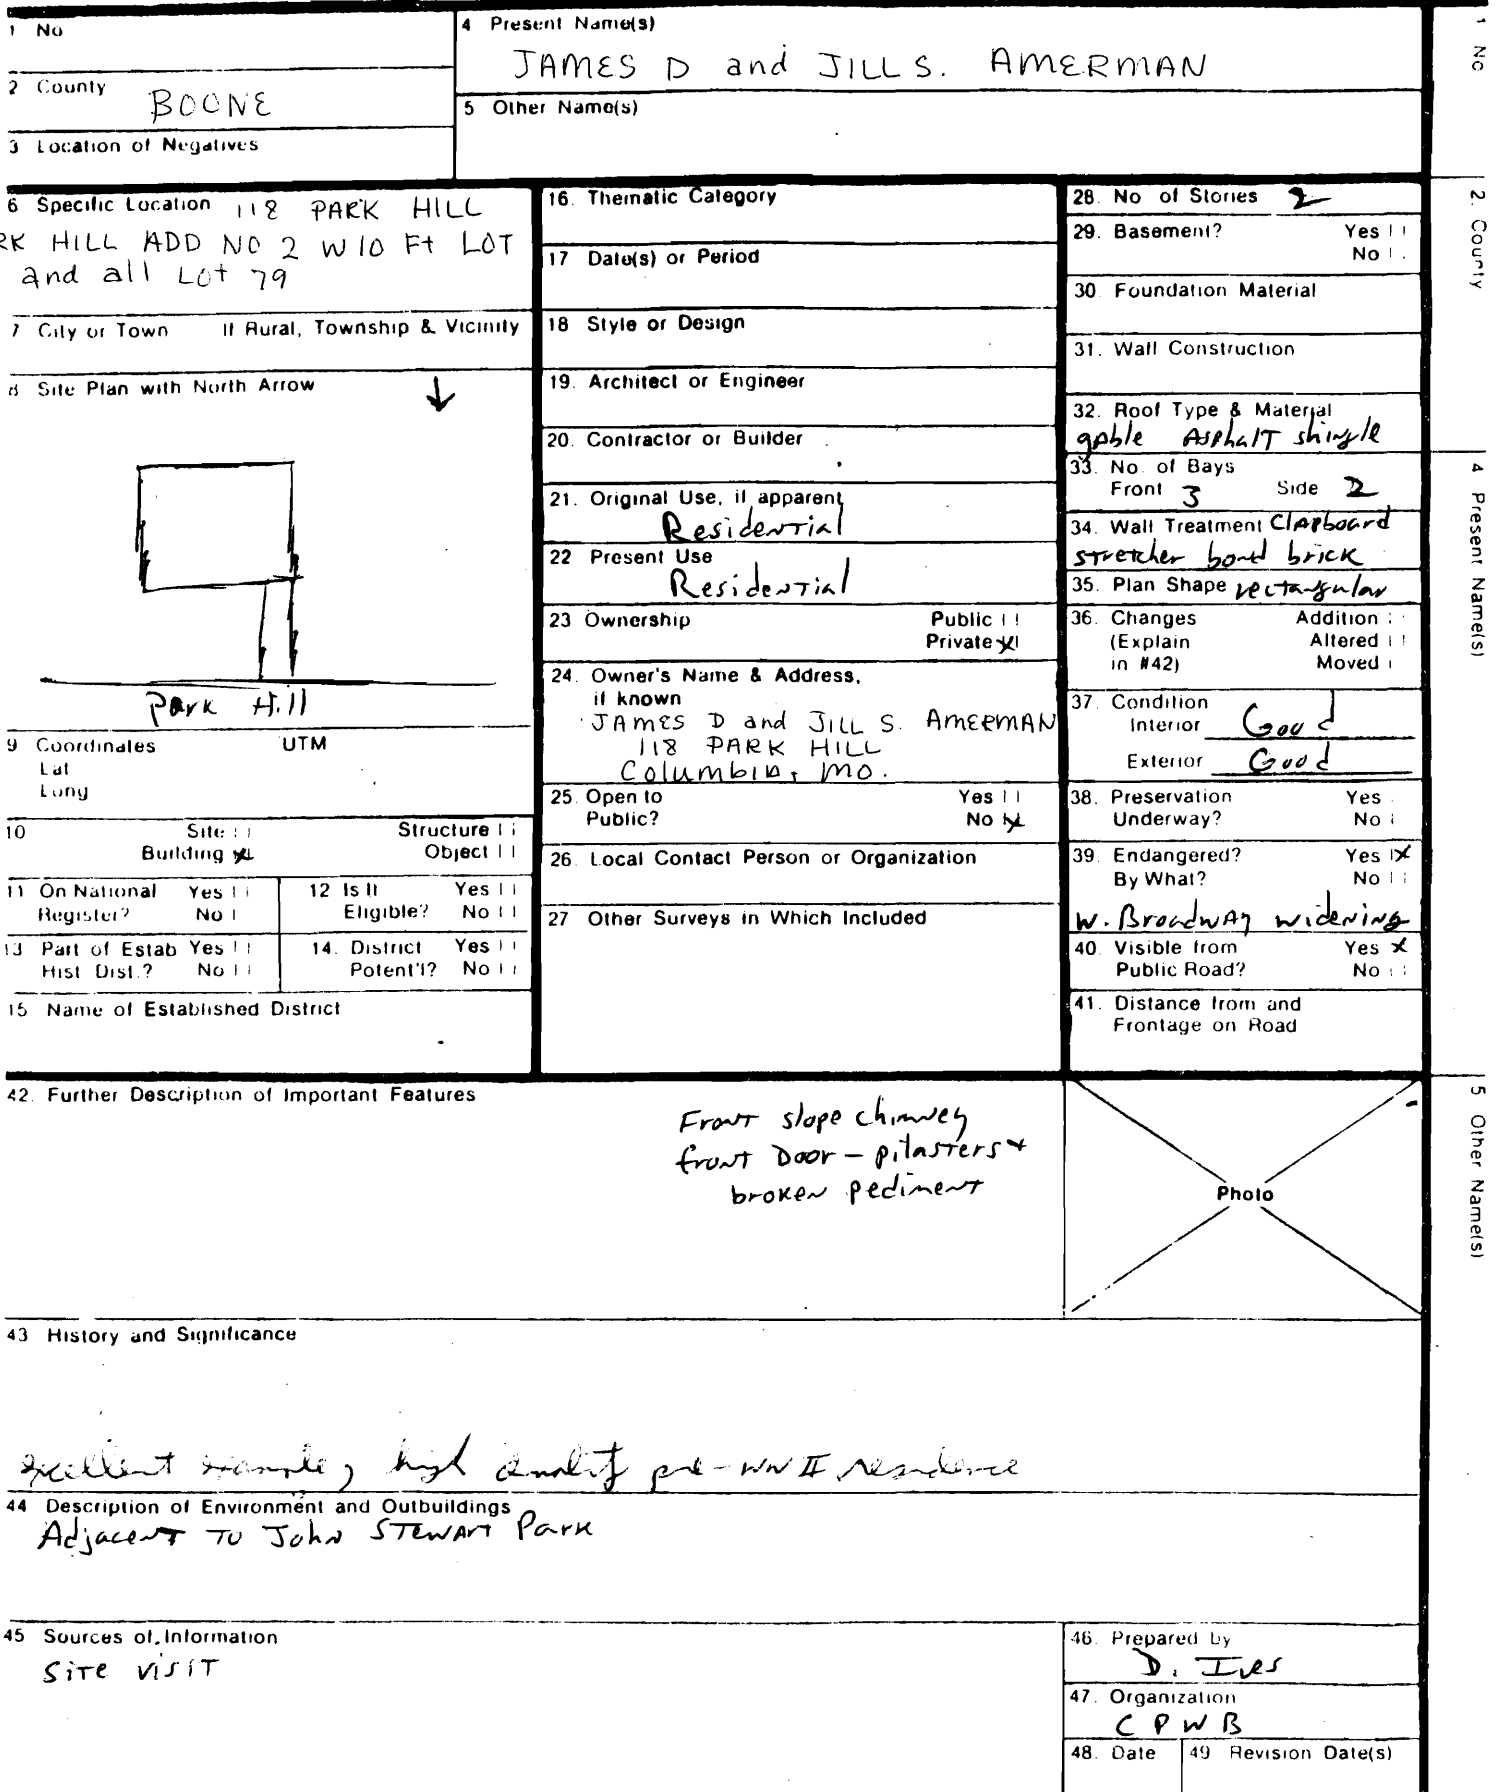 1 No
4 Present Name(s)
JAMES D and JILL S. AMERMAN
2 County
BOONE
5 Other Name(s)
3 Location of Negatives
6 Specific Location 118 PARK HILL
RK HILL ADD NO 2 W 10 Ft LOT
and all Lot 79
7 City or Town If Rural, Township & Vicinity
8 Site Plan with North Arrow
Park Hill
9 Coordinates UTM
Lat
Long
10 Site Structure
Building X Object
11 On National Register? Yes No
12 Is It Eligible? Yes No
13 Part of Estab Hist Dist.? Yes No
14. District Potent'l? Yes No
15 Name of Established District
16. Thematic Category
17 Date(s) or Period
18 Style or Design
19. Architect or Engineer
20. Contractor or Builder
21. Original Use, if apparent
Residential
22 Present Use
Residential
23 Ownership Public
Private X
24. Owner's Name & Address,
if known
JAMES D and JILL S. AMERMAN
118 PARK HILL
Columbia, MO.
25. Open to Yes
Public? No X
26. Local Contact Person or Organization
27 Other Surveys in Which Included
28. No of Stories 2
29. Basement? Yes
No
30 Foundation Material
31. Wall Construction
32. Roof Type & Material
gable Asphalt shingle
33. No. of Bays
Front 3 Side 2
34. Wall Treatment Clapboard
stretcher bond brick
35. Plan Shape rectangular
36. Changes Addition
(Explain Altered
in #42) Moved
37. Condition
Interior Good
Exterior Good
38. Preservation Yes
Underway? No
39. Endangered? Yes X
By What? No
W. Broadway widening
40. Visible from Yes X
Public Road? No
41. Distance from and
Frontage on Road
42. Further Description of Important Features
Front slope chimney
front Door – pilasters +
broken pediment
Photo
43 History and Significance
excellent example, high quality pre-WW II residence
44 Description of Environment and Outbuildings
Adjacent To John Stewart Park
45 Sources of Information
Site visit
46. Prepared by
D. Ives
47. Organization
CPWB
48. Date 49 Revision Date(s)
1 No
2. County
4 Present Name(s)
5 Other Name(s)